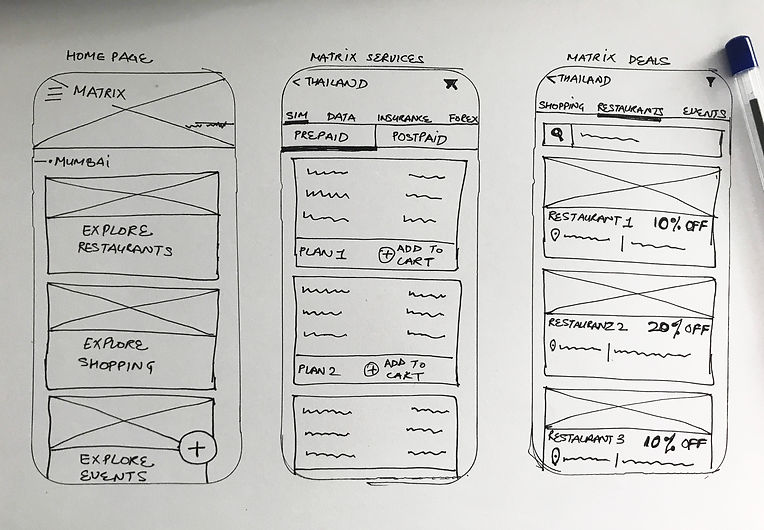 HOME PAGE
MATRIX
MUMBAI
EXPLORE
RESTAURANTS
EXPLORE
SHOPPING
EXPLORE
EVENTS
+
MATRIX SERVICES
< THAILAND
SIM DATA INSURANCE FOREX
PREPAID POSTPAID
PLAN 1 + ADD TO
CART
PLAN 2 + ADD TO
CART
MATRIX DEALS
< THAILAND
SHOPPING RESTAURANTS EVENTS
RESTAURANT 1 10% OFF
RESTAURANZ 2 20% OFF
RESTAURANT 3 10% OFF